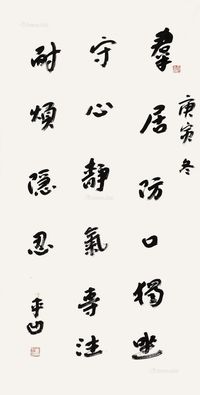 庚寅冬
羣居防口獨坐
守心靜氣專注
耐煩隱忍
平凹